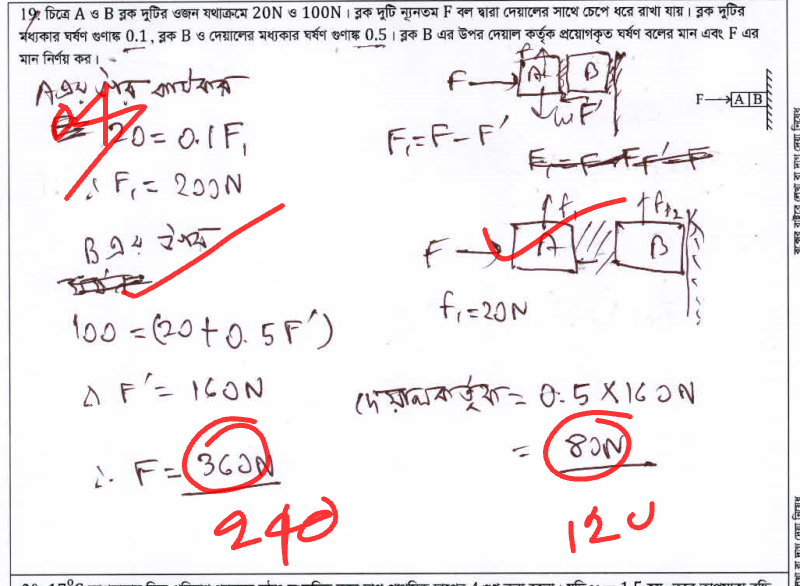 19. চিত্রে A ও B ব্লক দুটির ওজন যথাক্রমে 20N ও 100N। ব্লক দুটি ন্যূনতম F বল দ্বারা দেয়ালের সাথে চেপে ধরে রাখা যায়। ব্লক দুটির
মধ্যকার ঘর্ষণ গুণাঙ্ক 0.1, ব্লক B ও দেয়ালের মধ্যকার ঘর্ষণ গুণাঙ্ক 0.5। ব্লক B এর উপর দেয়াল কর্তৃক প্রয়োগকৃত ঘর্ষণ বলের মান এবং F এর
মান নির্ণয় কর।
A এর
20 = 0.1F₁
∴ F₁ = 200N
B এর
100 = (20 + 0.5F')
∴ F' = 160N
∴ F = 360N
240
F
A
B
W
F'
F₁ = F - F'
F
f₁
A
f₂
B
f₁ = 20N
= 0.5 × 160N
= 80N
120
F
A
B